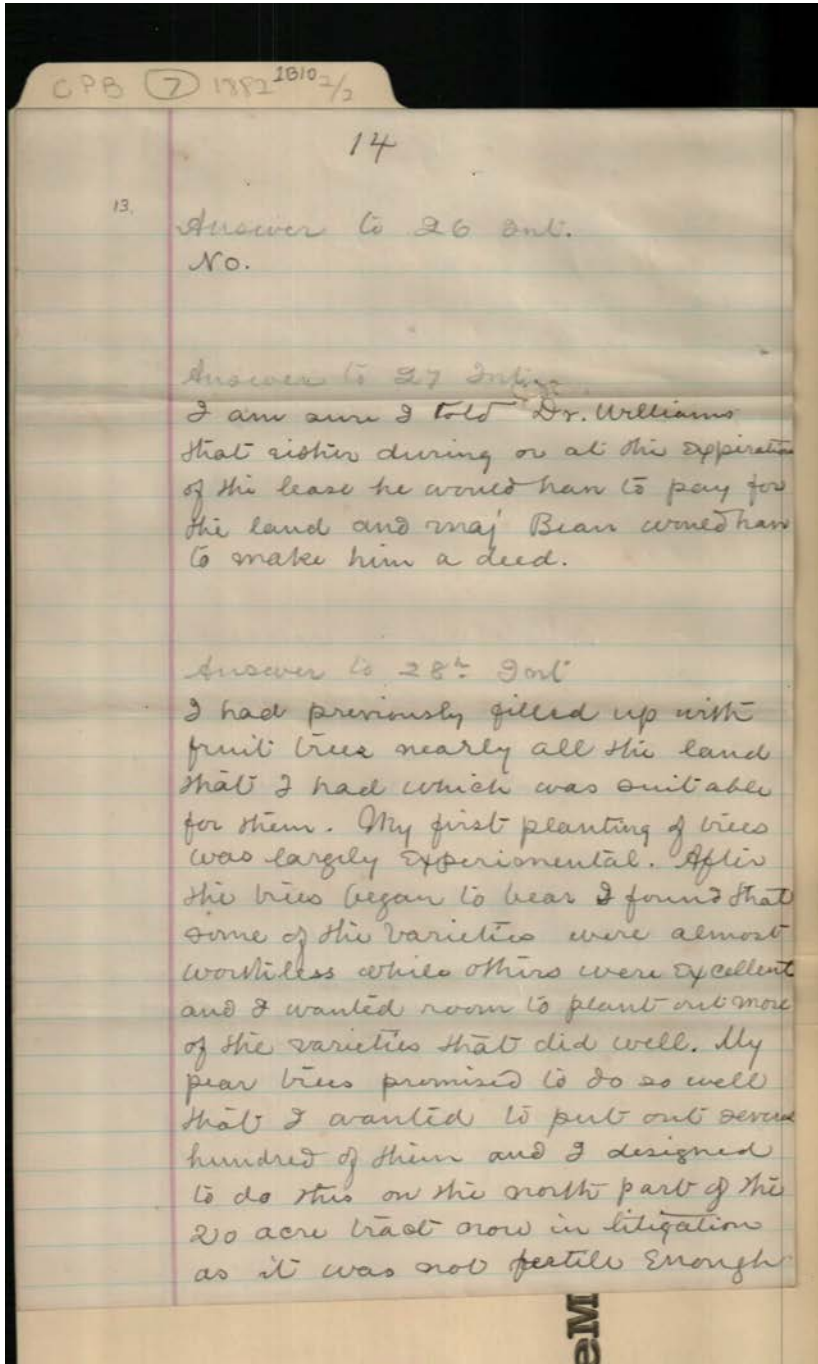 CPB 7 1882 1B10 2/2
14
13.
Answer to 26 Int.
No.
Answer to 27
I am sure I told Dr. Williams
that either during or at the expiration
of the lease he would hav to pay for
the land and maj Bean would hav
to make him a deed.
Answer to 28th Int
I had previously filled up with
fruit trees nearly all the land
that I had which was suitable
for them. My first planting of trees
was largely experimental. After
the trees began to bear I found that
some of the varieties were almost
worthless while others were excellent
and I wanted room to plant out more
of the varieties that did well. My
pear trees promised to do so well
that I wanted to put out several
hundred of them and I designed
to do this on the north part of the
20 acre tract now in litigation
as it was not fertile enough
eM